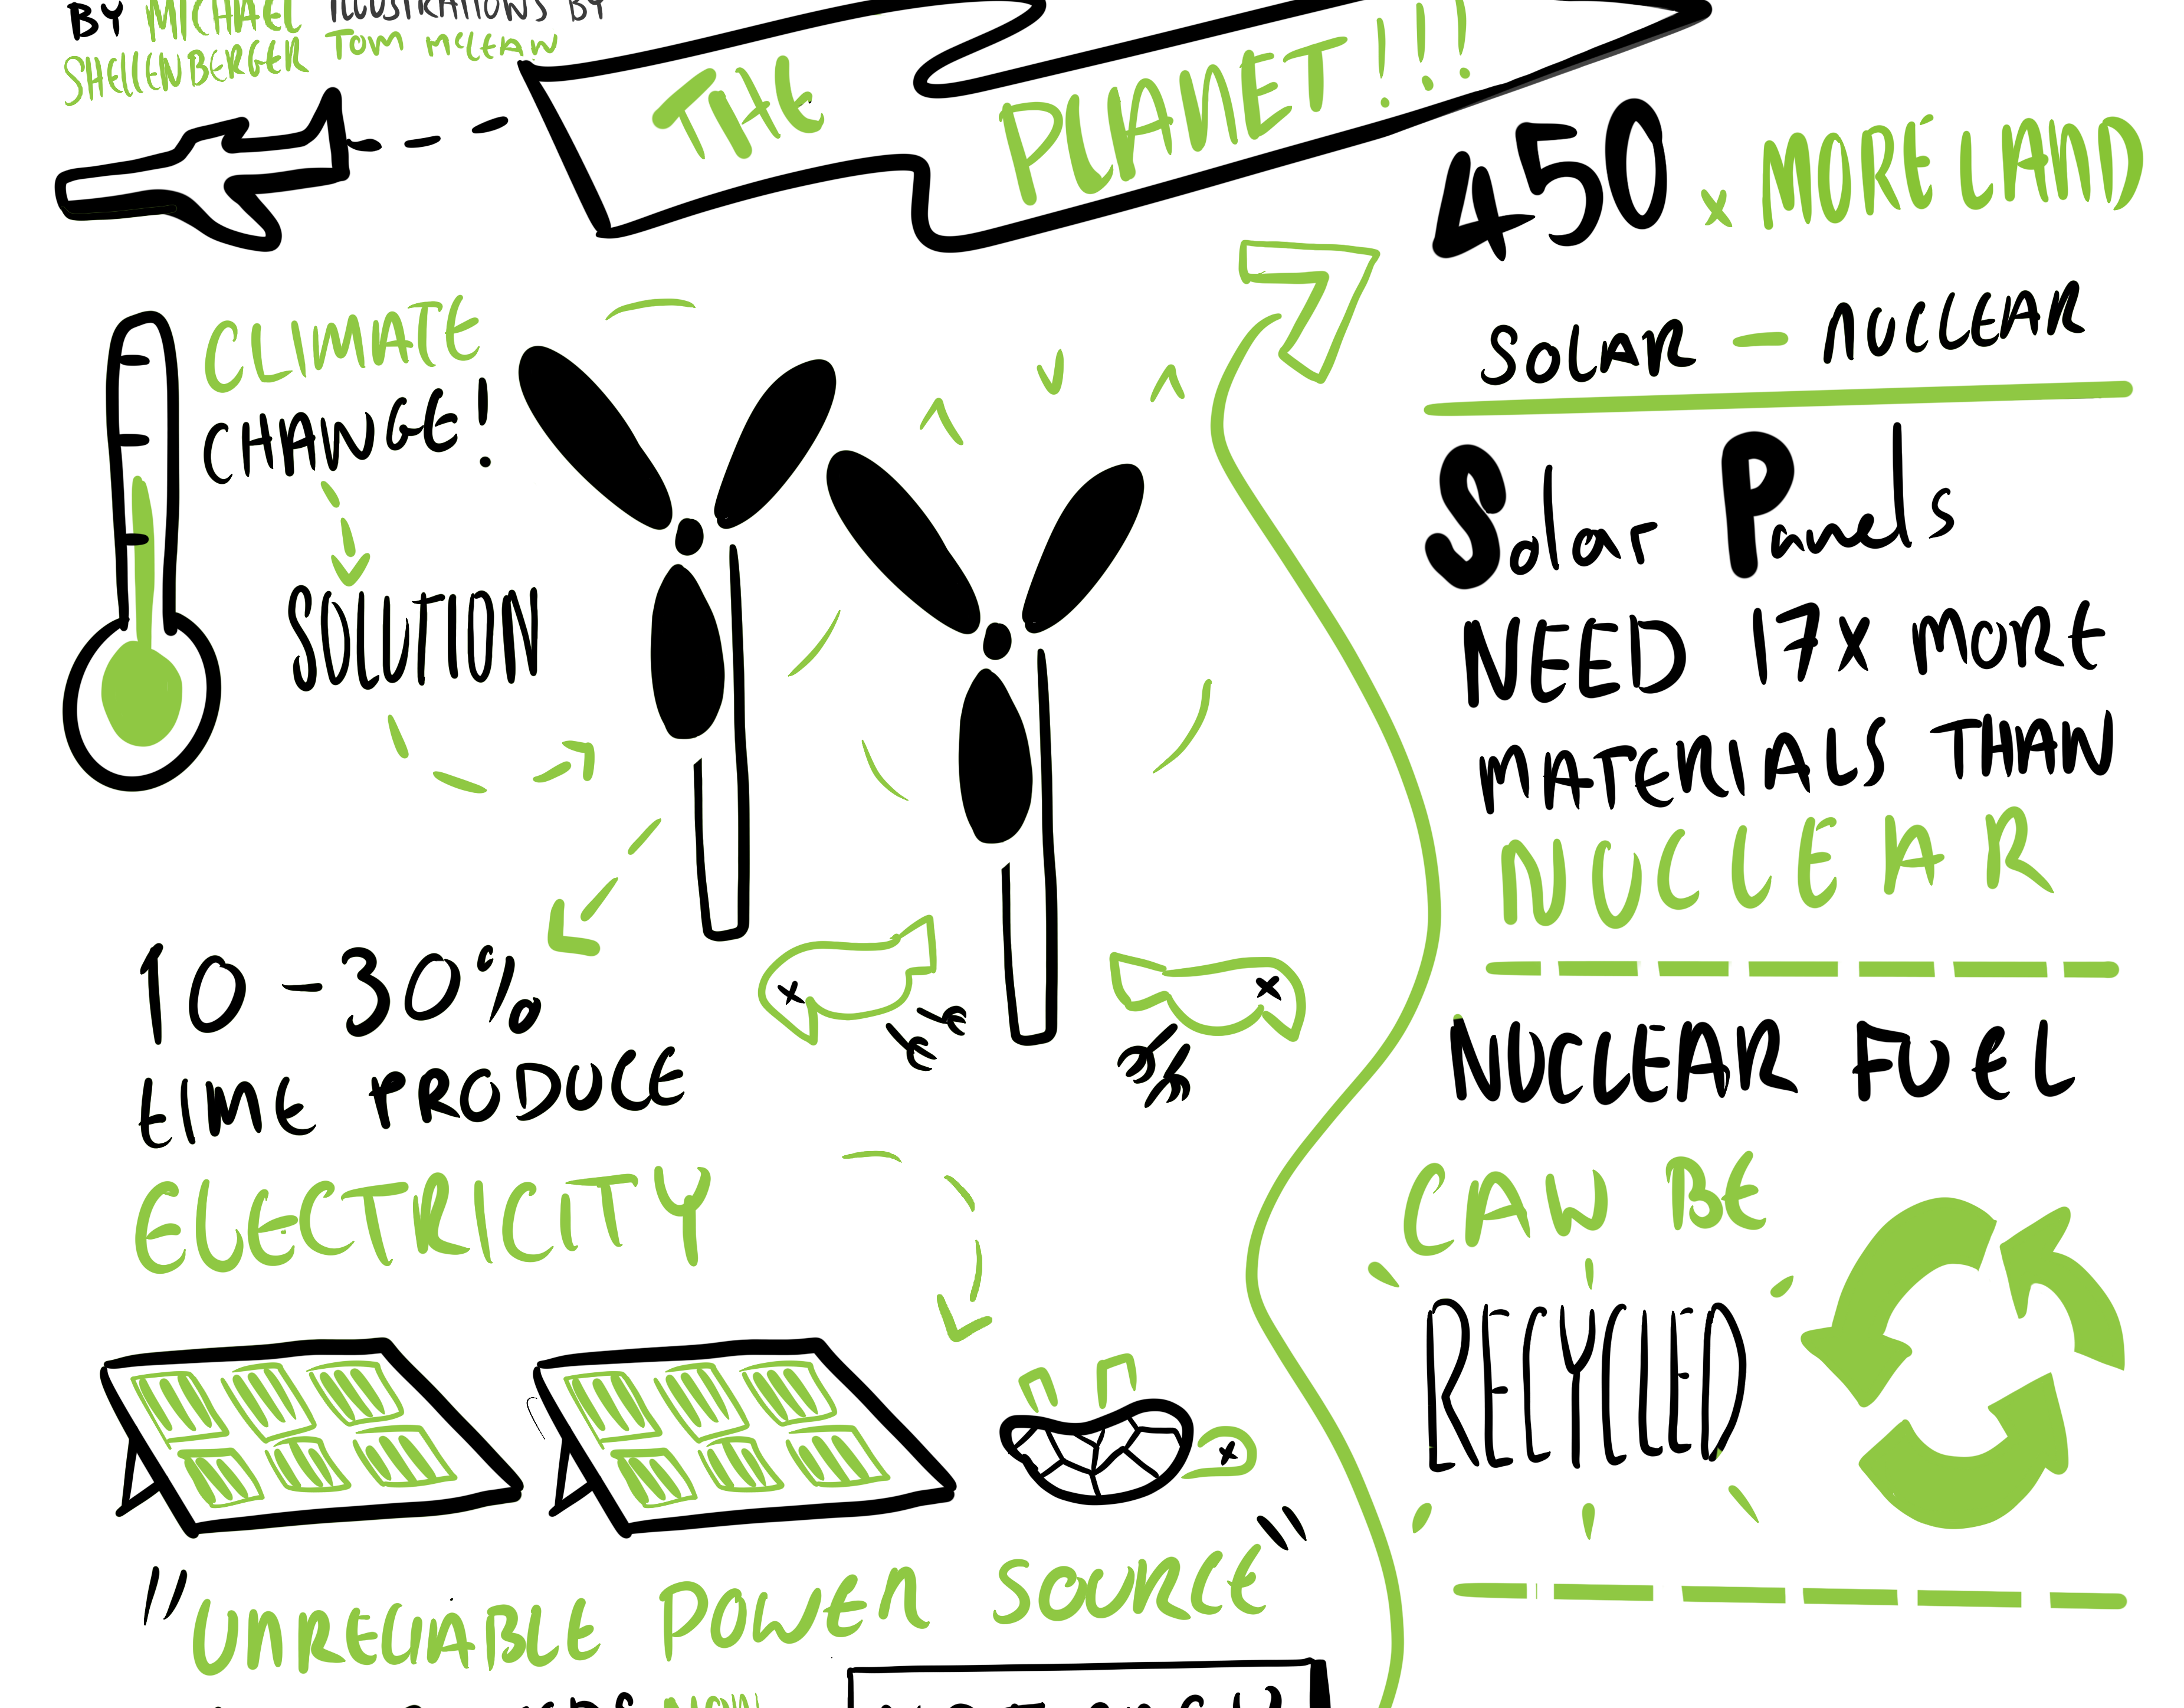 BY MICHAEL
SHELLENBERGER
ILLUSTRATIONS BY
TOM McLEAN
THE
PLANET!!!
CLIMATE
CHANGE!
SOLUTION
10-30%
TIME PRODUCE
ELECTRICITY
"UNRELIABLE POWER SOURCE"
450 x MORE LAND
SOLAR - NUCLEAR
Solar Panels
NEED 17x MORE
MATERIALS THAN
NUCLEAR
NUCLEAR FUEL
CAN BE
RECYCLED